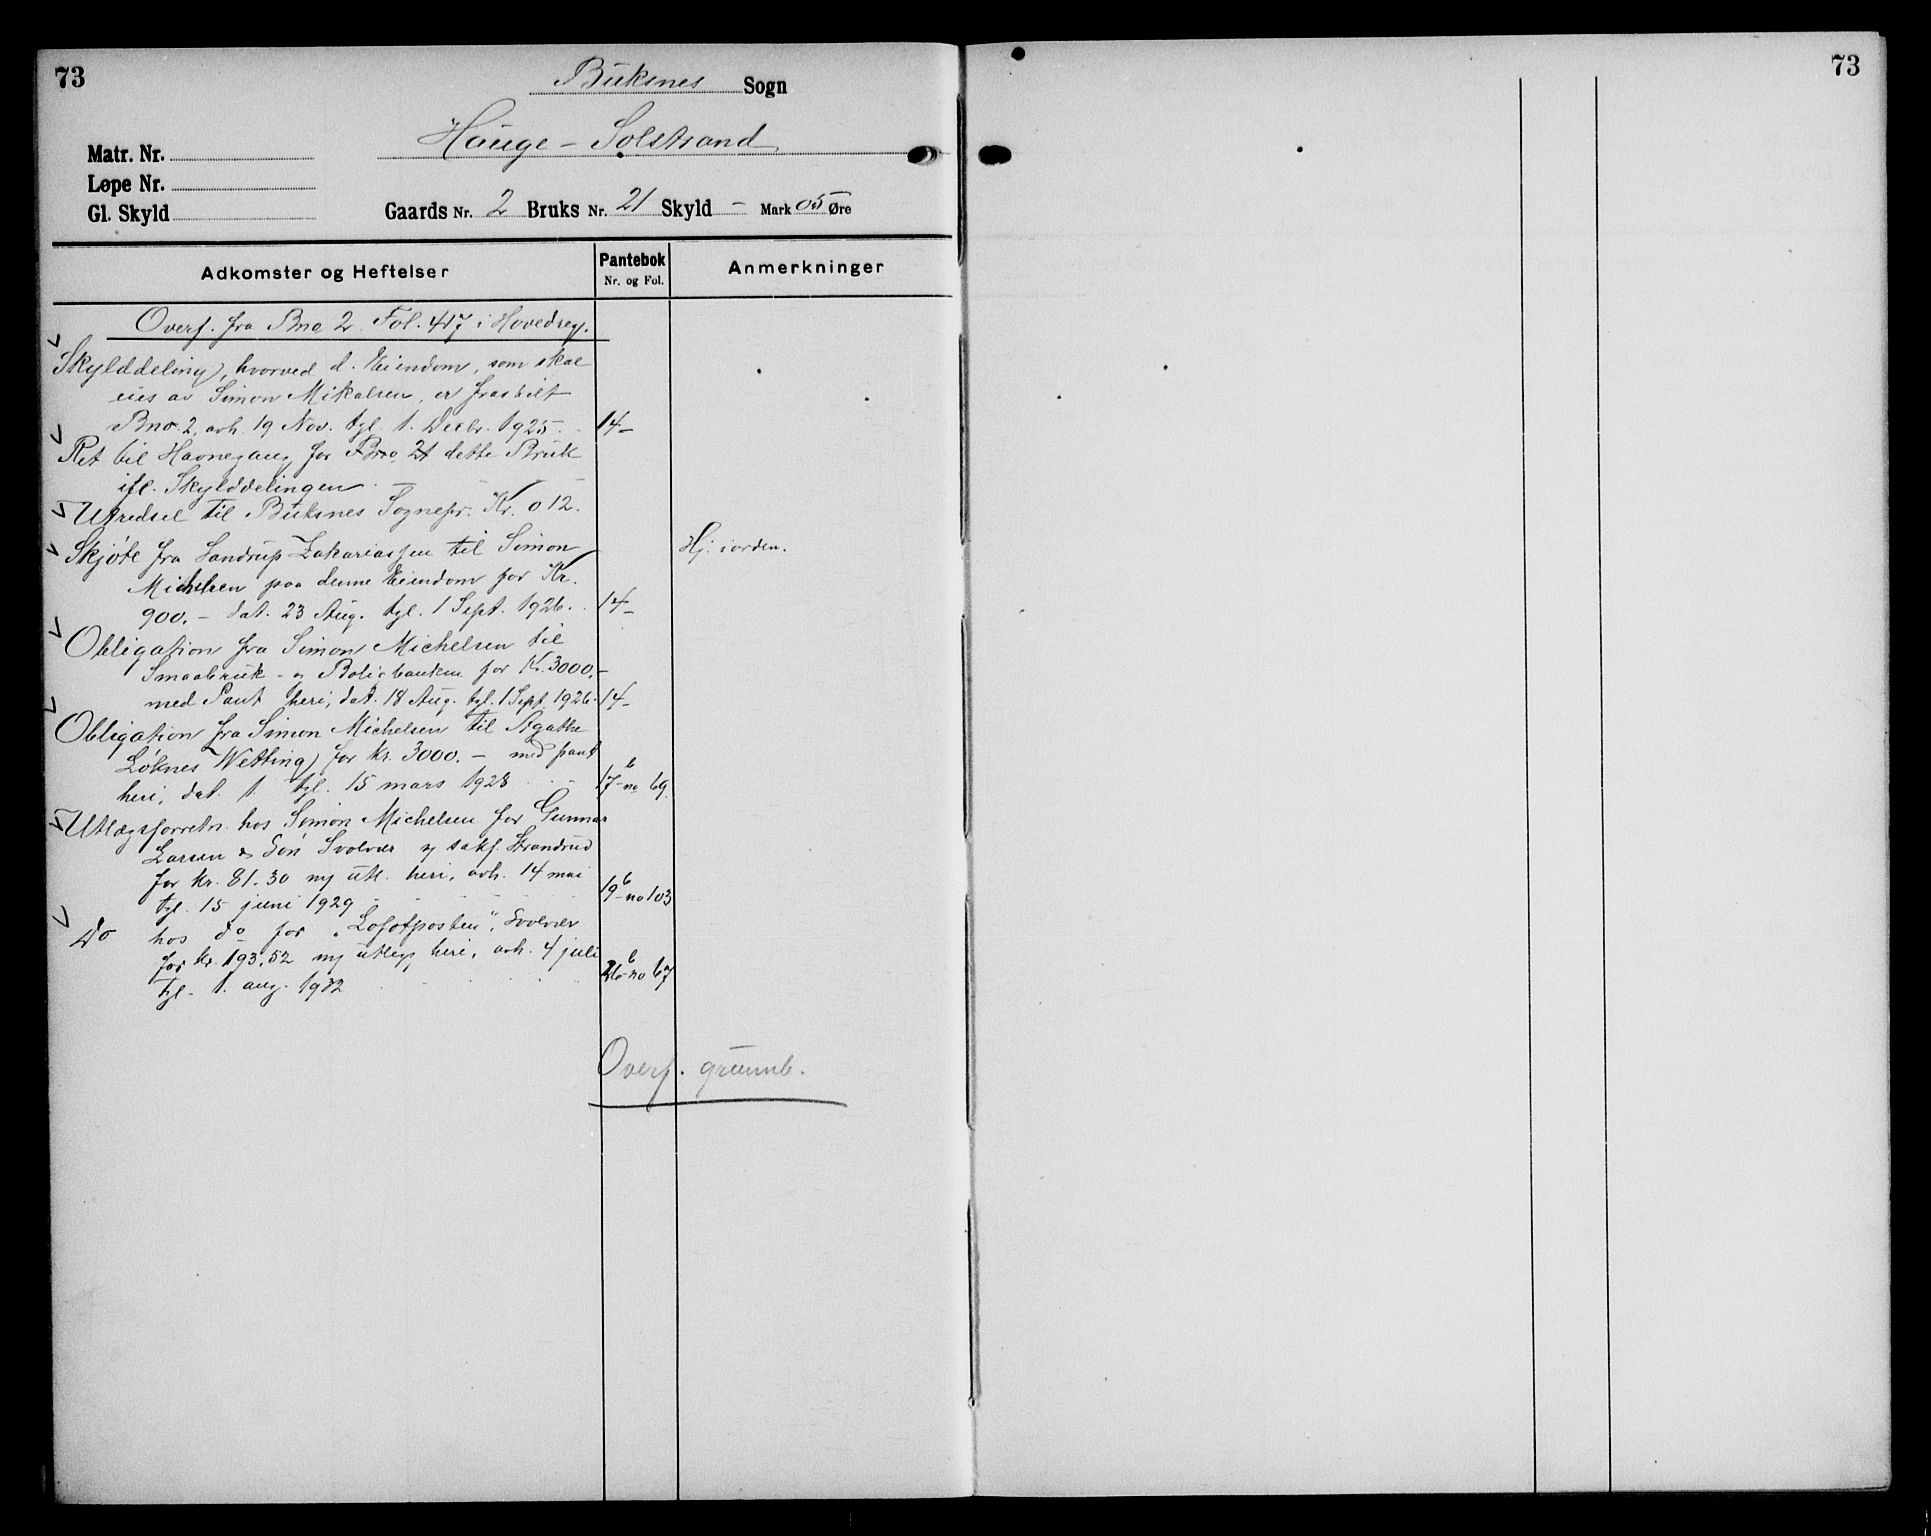 73
Buksnes Sogn
Hauge - Solstrand
Matr. Nr.
Løpe Nr.
Gl. Skyld
Gaards Nr. 2 Bruks Nr. 21 Skyld - Mark 05 Øre
Adkomster og Heftelser
Pantebok
Nr. og Fol.
Anmerkninger
Overf. fra Bno 2 Fol. 417 i Hovedreg.
Skylddeling, hvorved d. Eiendom, som skal
eies av Simon Mikalsen, er fraskilt
Bno. 2, avh. 19 Nov. tgl. 1. Decbr. 1925. 14-
Ret til Havnegang for Bno 21 dette Bruk
ifl. Skylddelingen
Utredsel til Buksnes Sognepr. Kr. 0 12.
Skjøte fra Landrup Zakariassen til Simon
Hj. iorden.
Michelsen paa denne Eiendom for Kr.
900.- dat. 23 Aug. tgl. 1 Sept. 1926. 14-
Obligation fra Simon Michelsen til
Smaabruk- og Boligbanken for Kr. 3000.-
med Pant heri, dat. 18 Aug. tgl. 1 Sept. 1926. 14-
Obligation fra Simon Michelsen til Agathe
Løknes Wetting for kr. 3000.- med pant
heri, dat. 1. tgl. 15 mars 1928 17 b - no 69
Utlægsforretn. hos Simon Michelsen for Gunnar
Larsen & Søn Svolvær v sakf. Strandrud
for kr. 81.30 m/ utl. heri, avh. 14 mai
tgl. 15 juni 1929 19 b - no 103
Do hos do for "Lofotposten", Svolvær
for kr. 193,52 m/ utlegg heri, avh. 4 juli
tgl. 1. aug. 1932 26 b - no 67
Overf. grunnb.
73